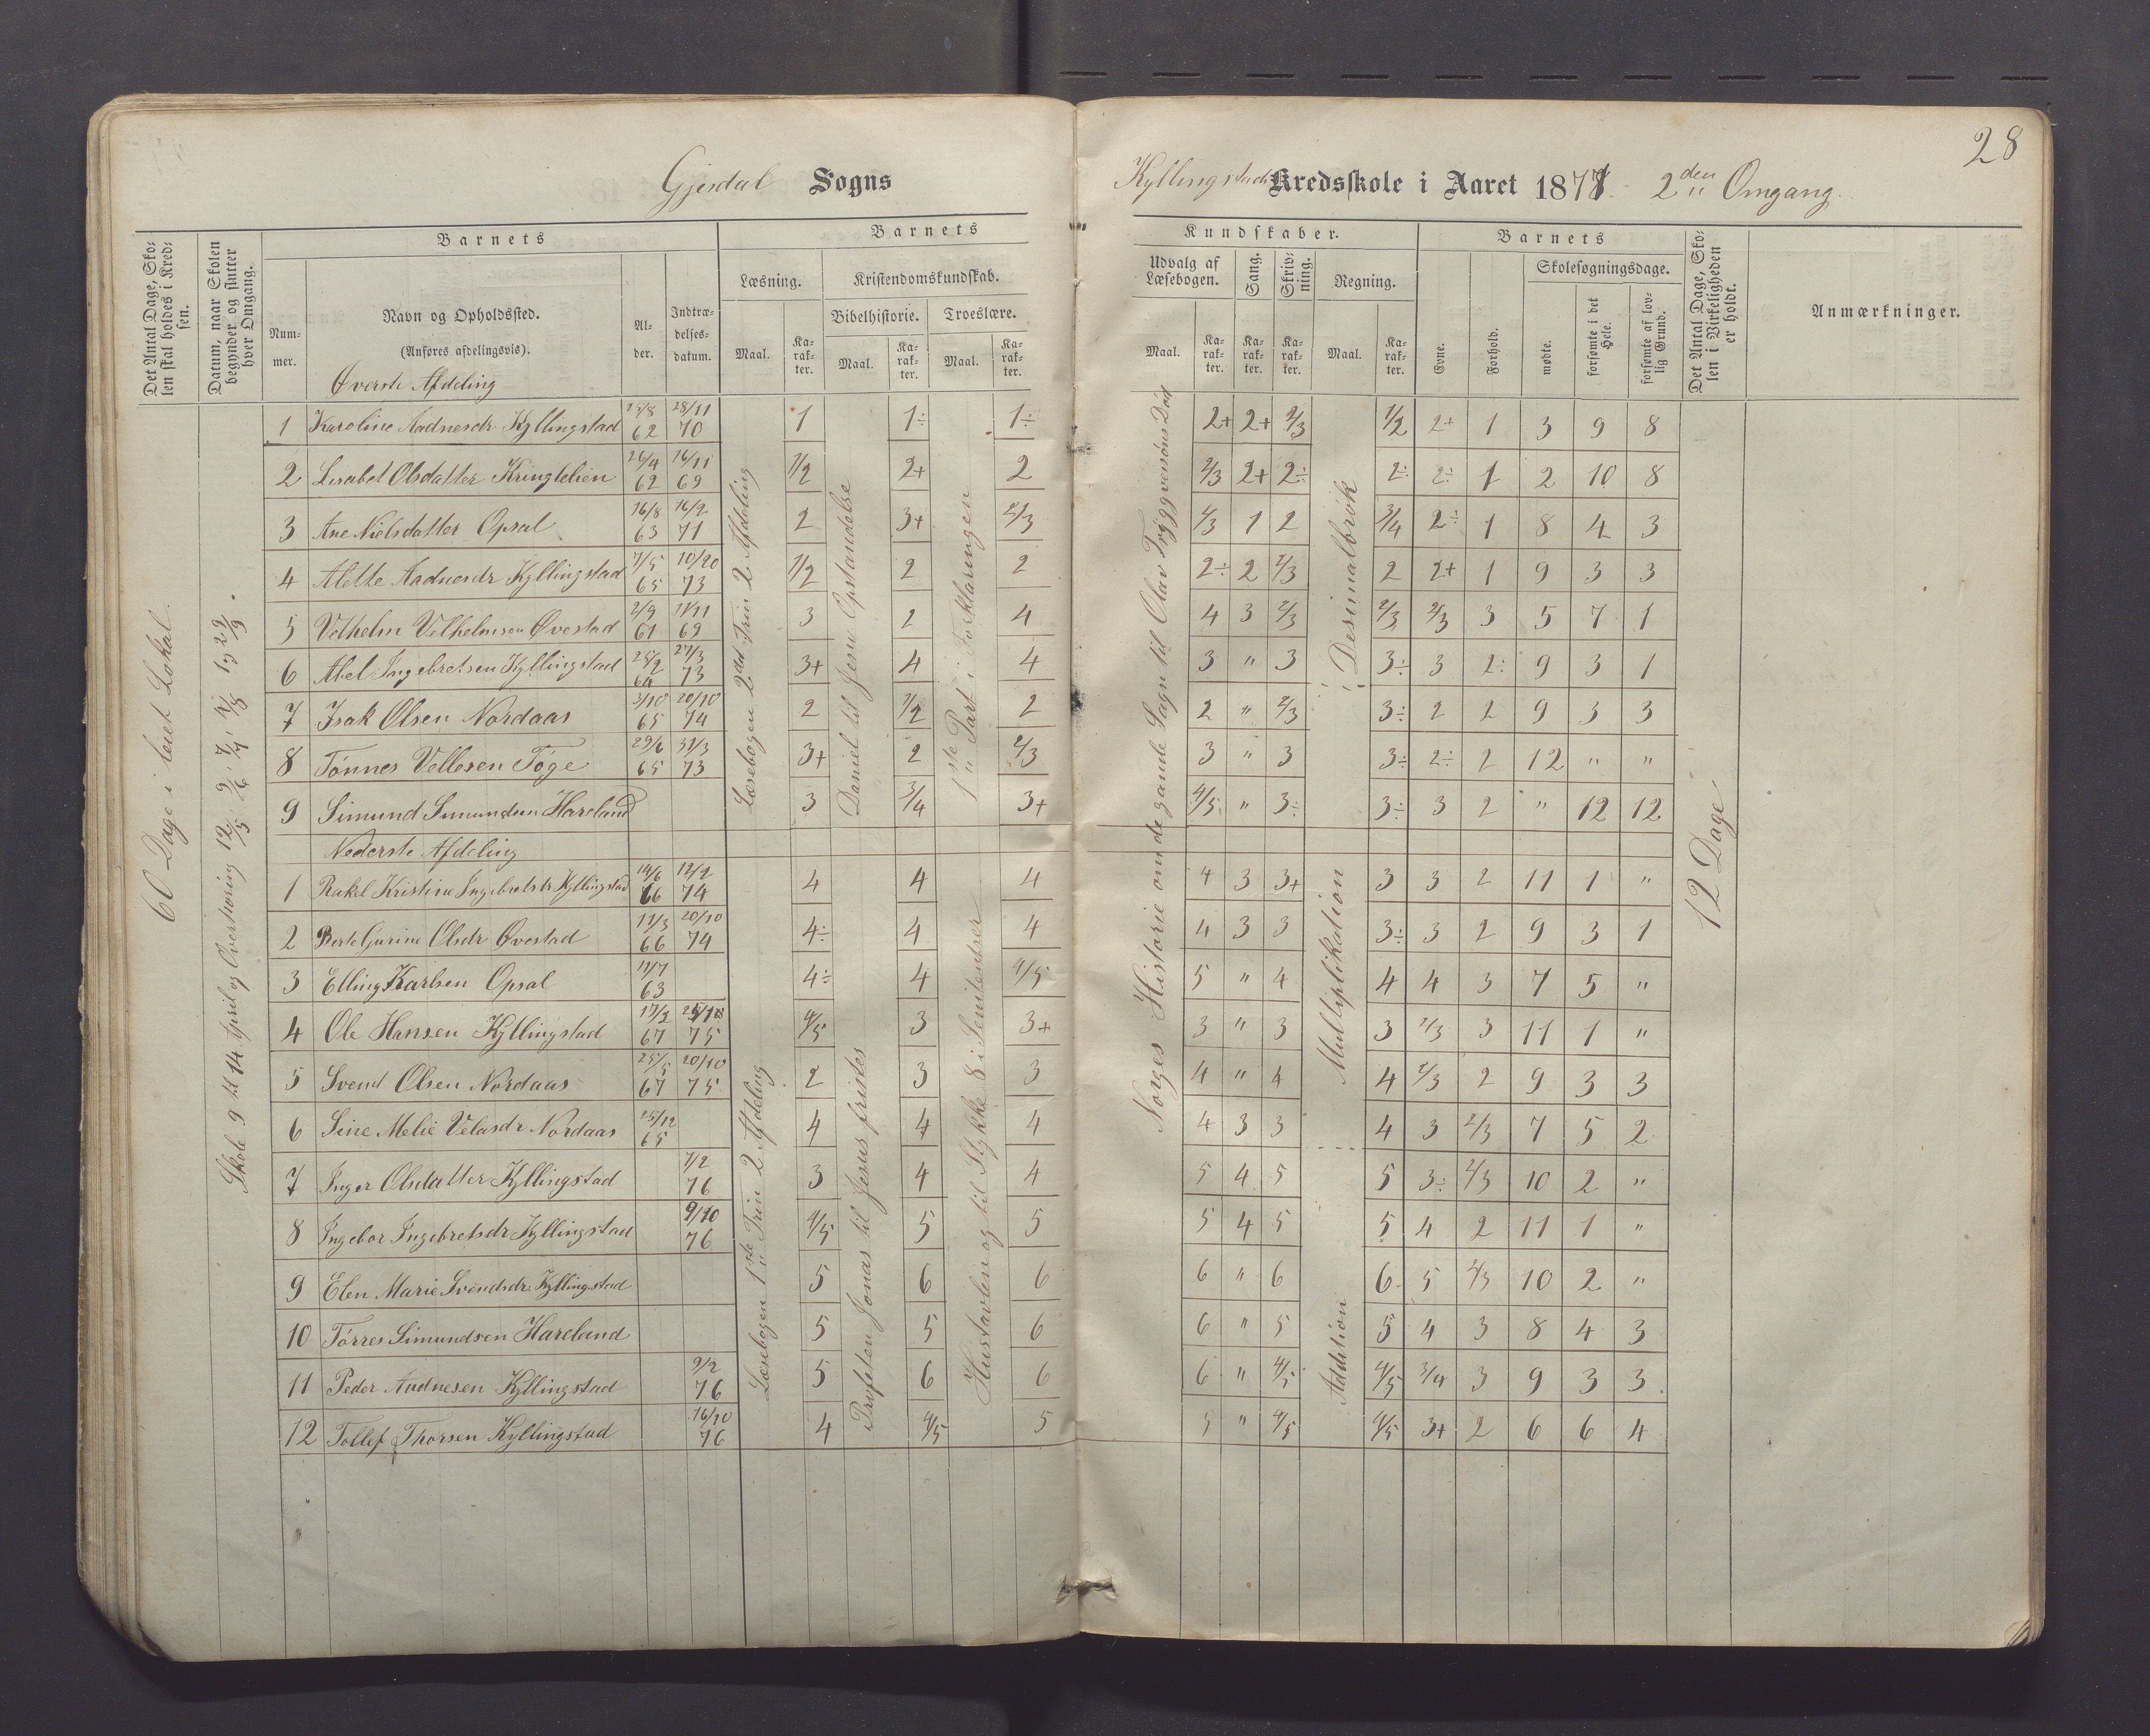 28
Gjesdal Sogns
Kyllingstad Kredsskole i Aaret 1877. 2den Omgang.
Det Antal Dage, Skolen skal holdes i Kredsen.
Datum, naar Skolen begynder og slutter hver Omgang.
Barnets
Nummer.
Navn og Opholdssted.
(Anføres afdelingsvis).
Øverste Afdeling
Alder.
Indtrædelsesdatum.
Barnets
Læsning.
Kristendomskundskab.
Bibelhistorie.
Troeslære.
Maal.
Karakter.
Maal.
Karakter.
Maal.
Karakter.
Kundskaber.
Udvalg af Læsebogen.
Sang.
Skrivning.
Regning.
Maal.
Karakter.
Karakter.
Karakter.
Maal.
Karakter.
Barnets
Evne.
Forhold.
Skolesøgningsdage.
mødte.
forsømte i det Hele.
forsømte af lovlig Grund.
Det Antal Dage, Skolen i Virkeligheden er holdt.
Anmærkninger.
60 Dage i leiet Lokal.
Skole 9 til 14 April og Overhøring 12/5
Læsebogen 2det Trin 2. Afdeling
Daniel til Jesu Opstandelse
1ste Part i Forklaringen
Norges Historie omdegaande Sagn til Olav Trøggvesøns Død
Desimalbrøk
12 Dage
1 Karoline Aadnesdr Kyllingstad 25/8 62 28/11 70 1 1÷ 1÷ 2+ 2+ 2/3 1/2 2+ 1 3 9 8
2 Lisabet Olsdatter Kringlelien 26/4 62 16/11 69 1/2 2+ 2 2/3 2+ 2÷ 2÷ 2÷ 1 2 10 8
3 Ane Nielsdatter Opsal 16/8 63 16/2 71 2 3+ 2/3 2/3 1 2 3/4 2÷ 1 8 4 3
4 Alette Aadnesdr Kyllingstad 7/5 65 10/20 73 1/2 2 2 2÷ 2 2/3 2 2+ 1 9 3 3
5 Velhelm Velhelmsen Øvestad 2/9 61 11/11 69 3 2 4 4 3 2/3 2/3 2/3 3 5 7 1
6 Abel Ingebretsen Kyllingstad 25/2 64 27/3 73 3+ 4 4 3 " 3 3÷ 3 2÷ 9 3 1
7 Isak Olsen Nordaas 3/10 65 20/10 74 2 1/2 2 2 " 2/3 3÷ 2 2 9 3 3
8 Tønnes Vellesen Tøge 29/6 65 31/3 73 3+ 2 2/3 3 " 3 3÷ 2÷ 2 12 " "
9 Simund Simundsen Hareland 3 3/4 3+ 4/5 " 3÷ 3÷ 3 2 " 12 12
Nederste Afdeling
Læsebogen 1ste Trin 2 Afdeling
Profeten Jonas til Jesus fristes
Hustavlen og til Stykke 8 i Sentenser
Multiplikation
Addition
1 Rakel Kristine Ingebretsdr Kyllingstad 14/6 66 12/2 74 4 4 4 4 3 3+ 3 3 2 11 1 "
2 Berte Gurine Olsdr Øvestad 11/3 66 20/10 74 4÷ 4 4 4 3 3 3÷ 3 2 9 3 1
3 Elling Karlsen Opsal 12/7 63 4÷ 4 4/5 5 " 4 4 4 3 7 5 "
4 Ole Hansen Kyllingstad 17/2 67 75 4/5 3 3+ 3 " 3 3 2/3 3 11 1 "
5 Svend Olsen Nordaas 25/5 67 20/10 75 2 3 3 4 " 4 4 2/3 2 9 3 3
6 Sine Melie Velasdr Nordaas 25/12 65 4 4 4 4 3 3 4 3 2/3 7 5 2
7 Inger Olsdatter Kyllingstad 7/2 76 3 4 4 5 4 5 5 3÷ 2/3 10 2 "
8 Ingebor Ingebretsdr Kyllingstad 9/10 76 4/5 5 5 5 4 5 5 4 2 11 1 "
9 Elen Marie Svendsdr Kyllingstad 5 6 6 6 " 6 6 5 2/3 10 2 "
10 Tørres Simundsen Hareland 5 5 6 6 " 5 5 4 3 8 4 3
11 Peder Aadnesen Kyllingstad 9/2 76 5 6 6 6 " 4/5 4/5 3/4 3 9 3 3
12 Tollef Thorsen Kyllingstad 16/10 76 4 4/5 5 5 " 4/5 4/5 3+ 2 6 6 4